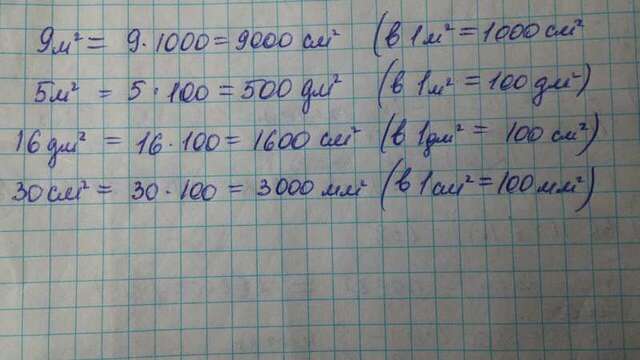 9м² = 9·1000 = 9000 см² (в 1м² = 1000 см²
5м² = 5·100 = 500 дм² (в 1м² = 100 дм²)
16 дм² = 16·100 = 1600 см² (в 1дм² = 100 см²)
30 см² = 30·100 = 3000 мм² (в 1см² = 100 мм²)